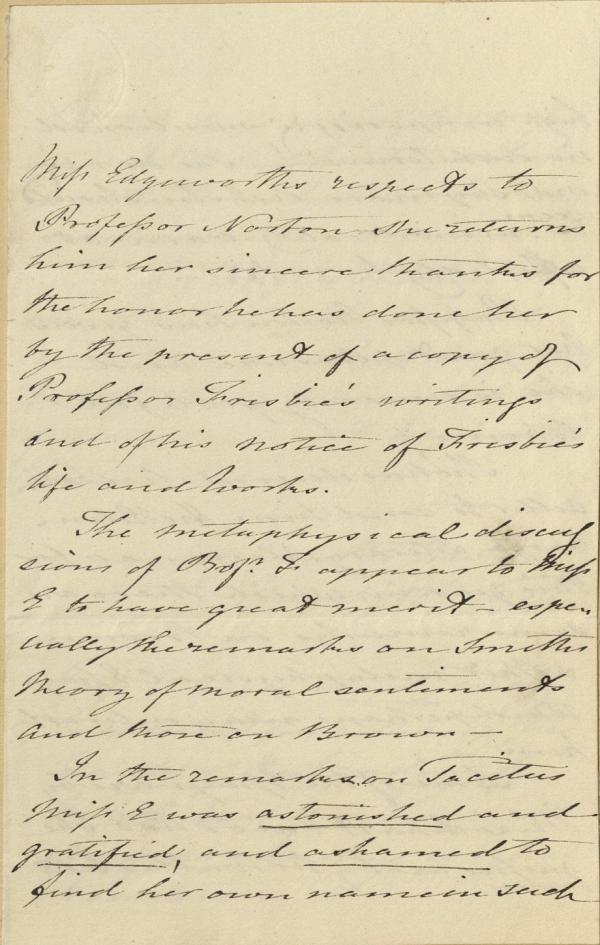 Miss Edgeworths respects to
Professor Norton she returns
him her sincere thanks for
the honor he has done her
by the present of a copy of
Professor Frisbie's writings
and of his notice of Frisbie's
life and works.
The metaphysical discus
sions of Profr. F appear to Miss
E to have great merit – espe
cially the remarks on Smiths
theory of moral sentiments
and those on Brown –
In the remarks on Tacitus
Miss E was astonished and
gratified, and ashamed to
find her own name in such